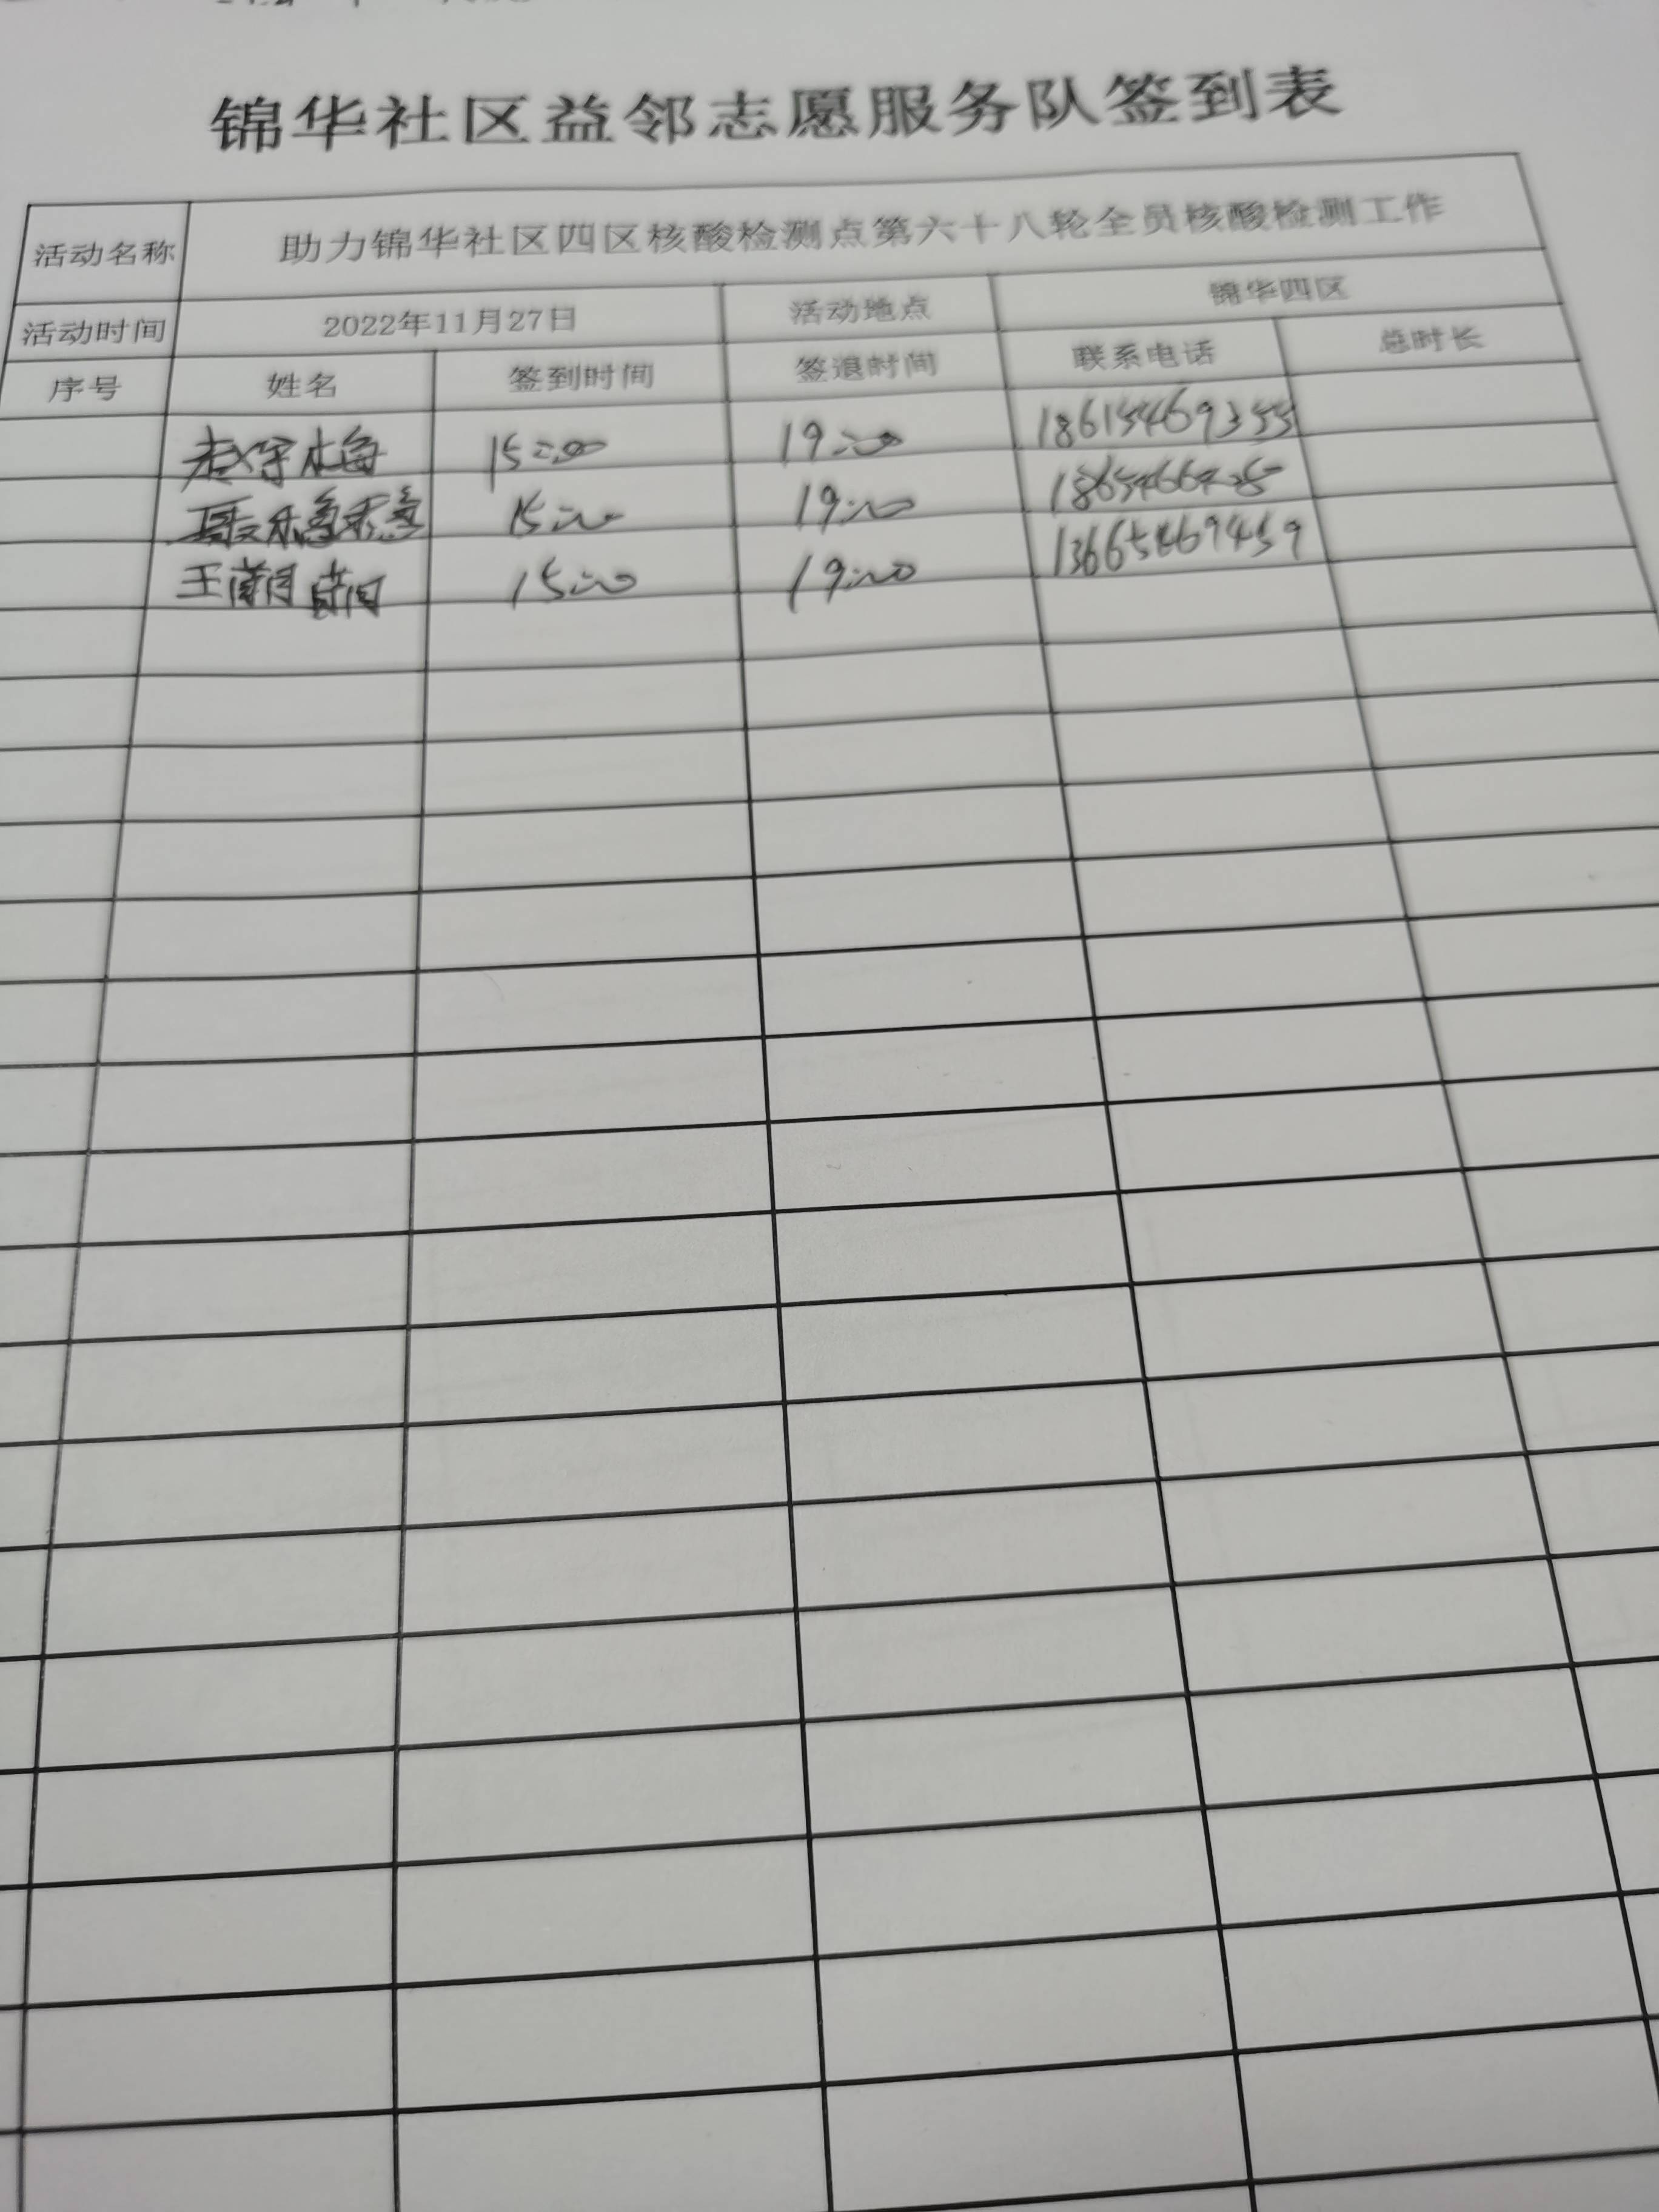 锦华社区益邻志愿服务队签到表
活动名称 助力锦华社区四区核酸检测点第六十八轮全员核酸检测工作
活动时间 2022年11月27日 活动地点 锦华四区
序号 姓名 签到时间 签退时间 联系电话 总时长
赵学梅 15:00 19:00 18615469355
15:00 19:00
王 15:00 19:00